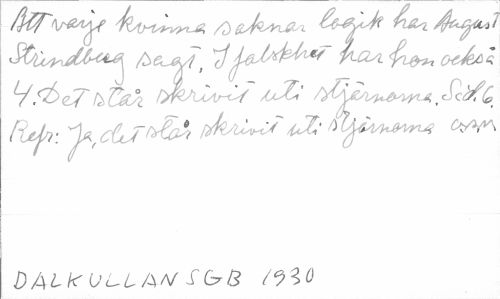 Att varje kvinna saknar logik har August
Strindberg sagt, I falskhet har hon också
4. Det står skrivit uti stjärnorna. Sid. 6.
Refr: Ja, det står skrivit uti stjärnorna o.s.v.
DALKULLAN SGB 1930